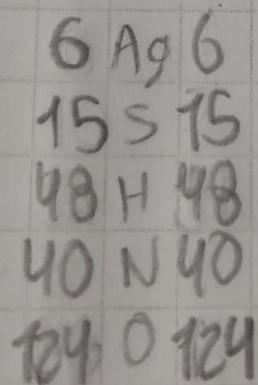 6 Ag 6
15 S 15
48 H 48
40 N 40
124 O 124